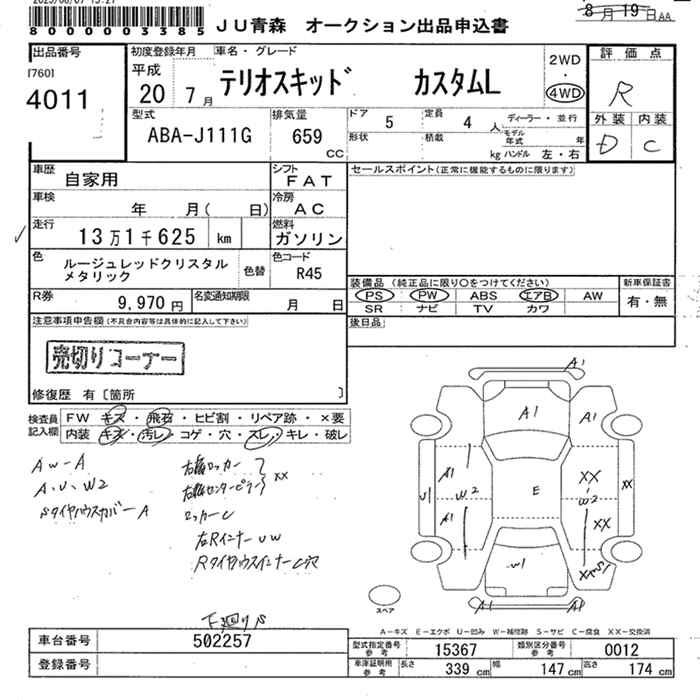 80000003385 JU青森 オークション出品申込書
8月19日AA
出品番号
[760]
4011
初度登録年月
平成
20 7月
車名・グレード
テリオスキッド カスタムL
2WD
・
4WD
評価点
R
外装 内装
D C
型式
ABA-J111G
排気量
659
CC
ドア 5 定員 4 人
形状 積載 kg
ディーラー・並行
モデル年式 年
ハンドル 左・右
車歴 自家用
シフト FAT
セールスポイント(正常に機能するものに限ります)
車検 年 月( 日)
冷房 AC
走行 13万1千625 km
燃料 ガソリン
色 ルージュレッドクリスタル
メタリック
色替
色コード R45
装備品 (純正品に限り○をつけてください)
PS PW ABS エアB AW
SR ナビ TV カワ
新車保証書
有・無
R券 9,970円
名変通知期限 月 日
後日品
注意事項申告欄(不具合内容等は具体的に記入して下さい)
売切りコーナー
修復歴 有〔箇所 〕
検査員記入欄
FW キズ・飛石・ヒビ割・リペア跡・×要
内装 キズ・汚レ・コゲ・穴・スレ・キレ・破レ
AW-A
A、U、W2
右後ロッカー
右後センターピラー
XX
A1
A1
A1
A1
U1
W2
A1
E
XX
W2
XX
XX
W1
A1
A1
スペア
下廻りS
A-キズ E-エクボ U-凹み W-補修跡 S-サビ C-腐食 XX-交換済
車台番号 502257
登録番号
型式指定番号 参考 15367
類別区分番号 参考 0012
車庫証明用 参考 長さ 339 cm 幅 147 cm 高さ 174 cm